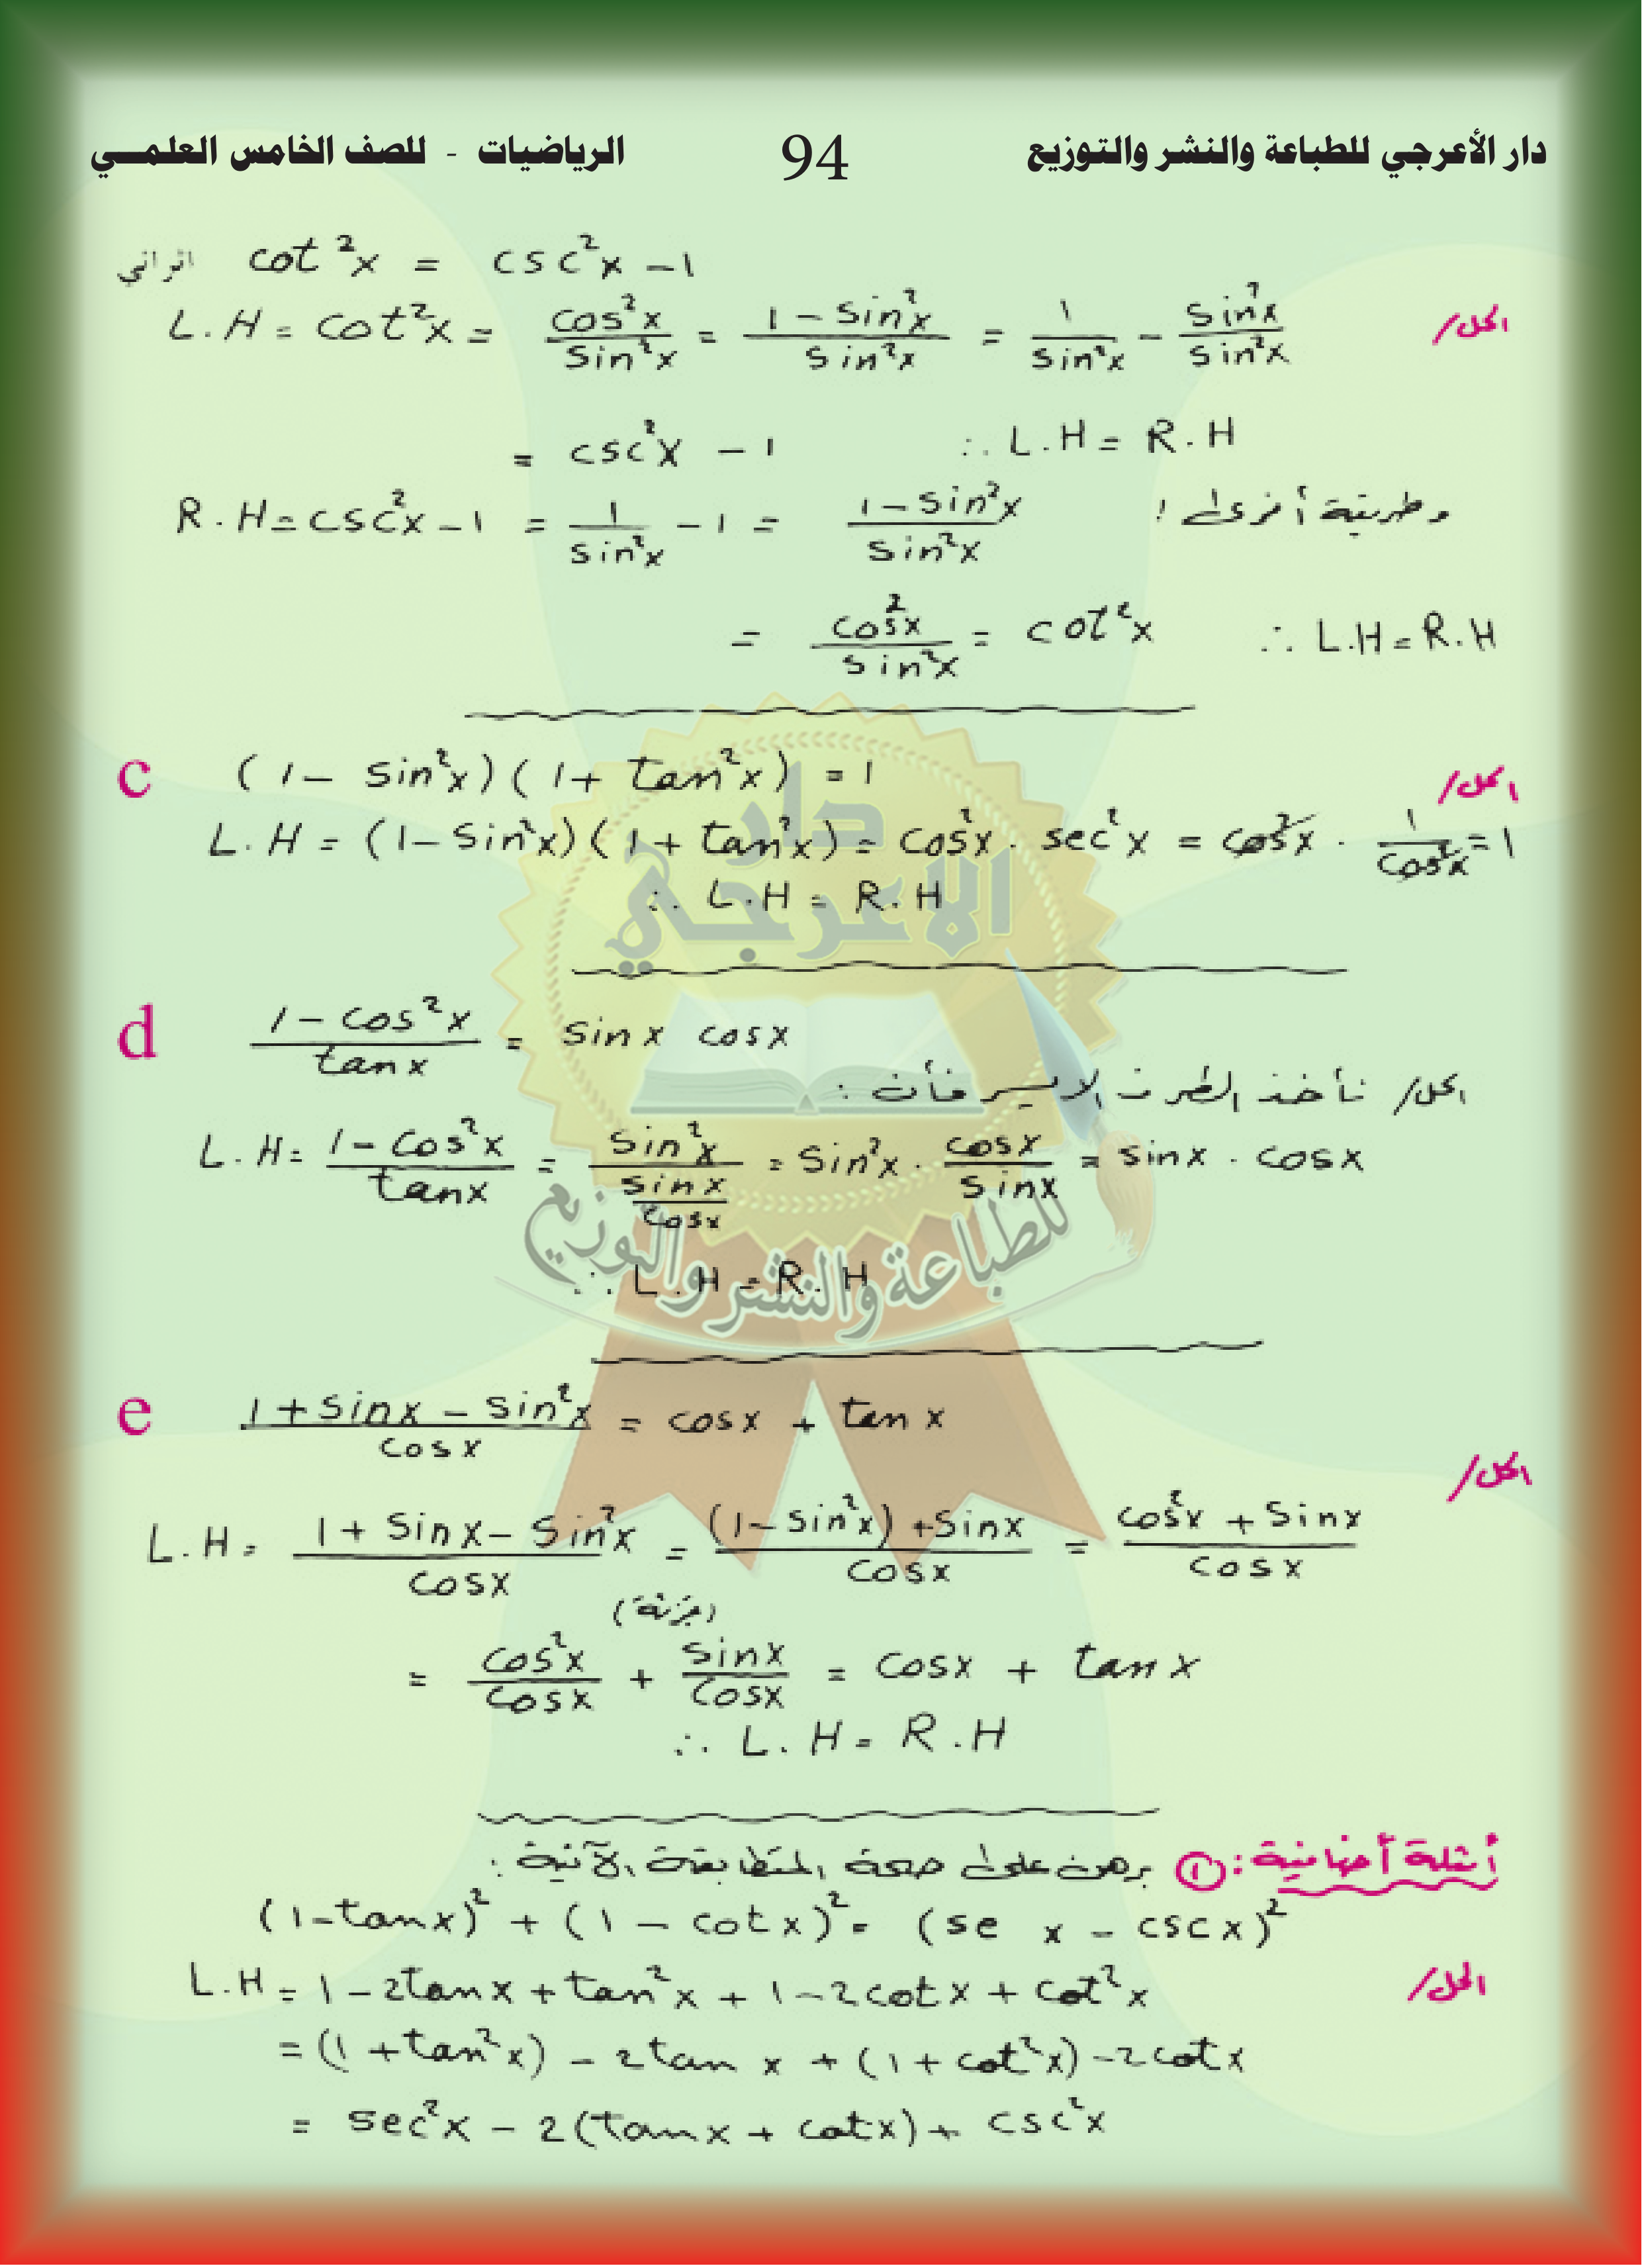 دار الأعرجي للطباعة والنشر والتوزيع 94 الرياضيات - للصف الخامس العلمـــي
cot²x = csc²x - 1
الحل/ L.H = cot²x = cos²x / sin²x = 1 - sin²x / sin²x = 1 / sin²x - sin²x / sin²x
= csc²x - 1 ∴ L.H = R.H
وطريقة أخرى : R.H = csc²x - 1 = 1 / sin²x - 1 = 1 - sin²x / sin²x
= cos²x / sin²x = cot²x ∴ L.H = R.H
c (1 - sin²x)(1 + tan²x) = 1 الحل/
L.H = (1 - sin²x)(1 + tan²x) = cos²x . sec²x = cos²x . 1 / cos²x = 1
∴ L.H = R.H
d 1 - cos²x / tanx = sinx cosx
الحل/ نأخذ الطرف الايسر فأن :
L.H = 1 - cos²x / tanx = sin²x / sinx / cosx = sin²x . cosx / sinx = sinx . cosx
∴ L.H = R.H
e 1 + sinx - sin²x / cosx = cosx + tanx
الحل/
L.H = 1 + sinx - sin²x / cosx = (1 - sin²x) + sinx / cosx = cos²x + sinx / cosx
= cos²x / cosx + sinx / cosx = cosx + tanx
∴ L.H = R.H
أمثلة أضافية : ① برهن على صحة المتطابقة الآتية :
(1 - tanx)² + (1 - cotx)² = (se x - cscx)²
الحل/ L.H = 1 - 2tanx + tan²x + 1 - 2cotx + cot²x
= (1 + tan²x) - 2tan x + (1 + cot²x) - 2cotx
= sec²x - 2(tanx + cotx) + csc²x
دار
الاعرجي
للطباعة والنشر والتوزيع